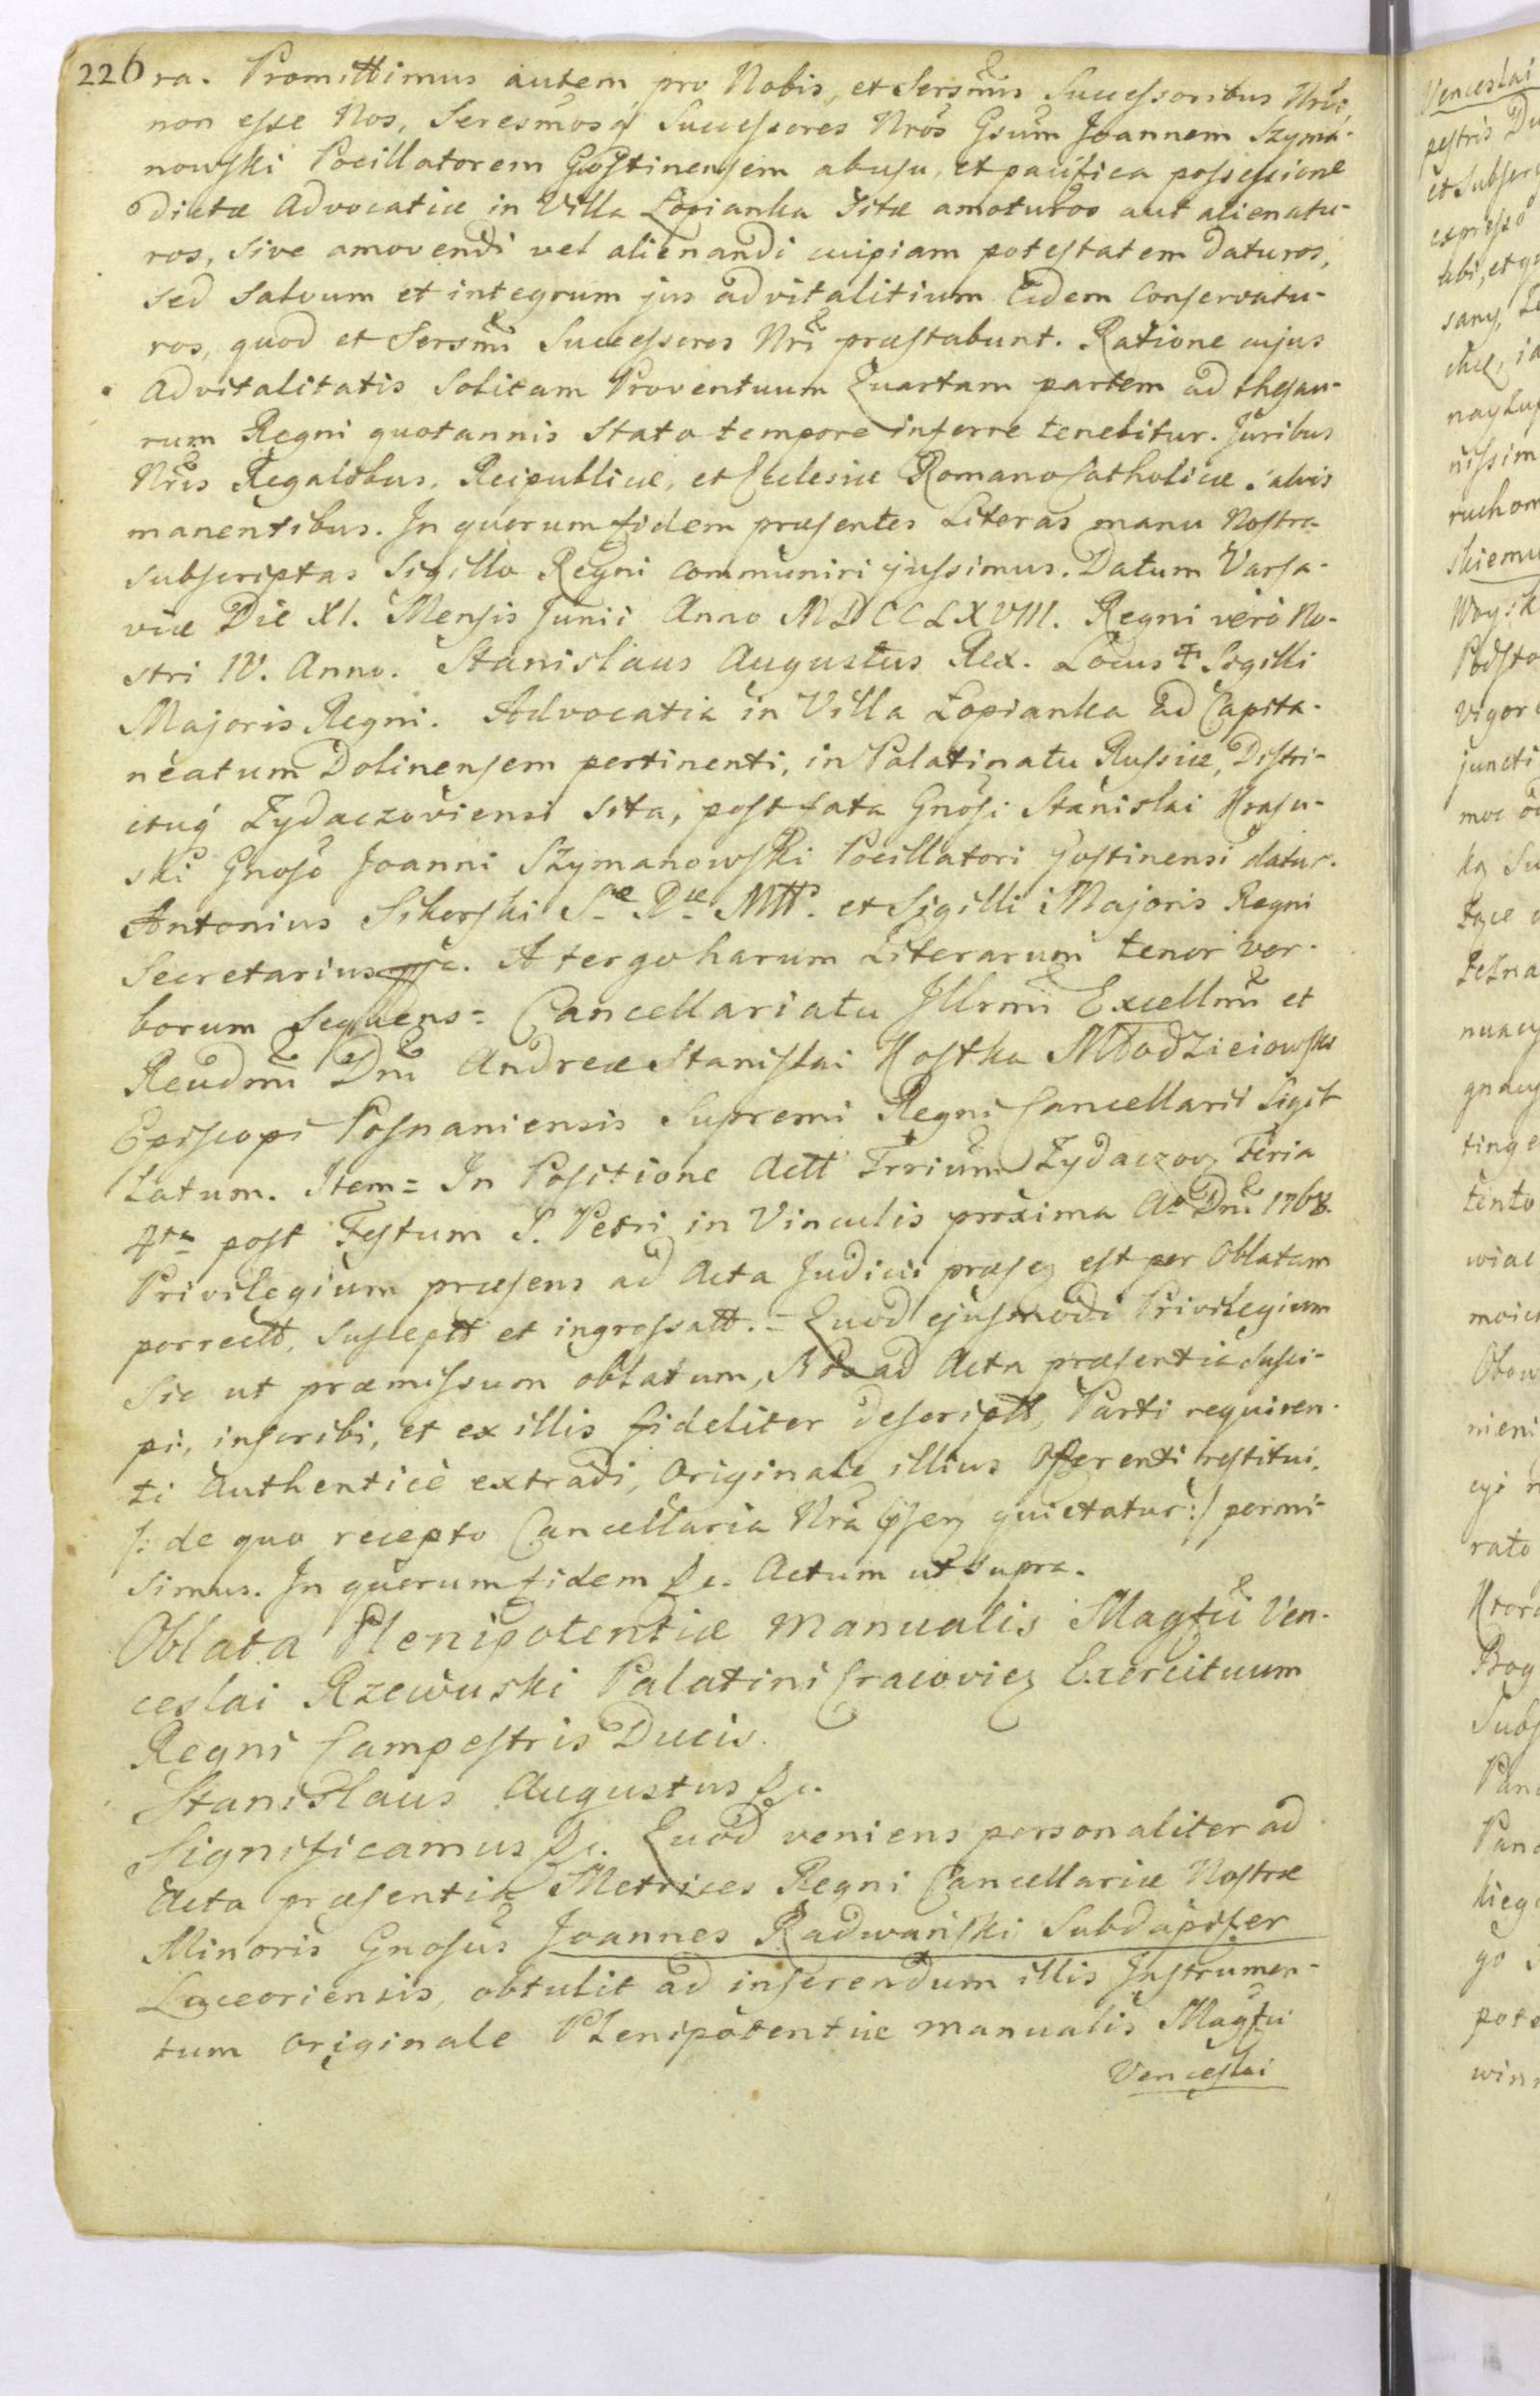 226 ra. Promittimus autem pro Nobis, et Sersmis Successoribus Nris,
non esse Nos, Seresmosq Successores Nros Gsum Joannem Szyma-
nowski Pocillatorem Gostinensem abusu, et pacifica possessione
dictæ Advocatiæ in Villa Łopianka sitæ amoturos aut alienatu-
ros, sive amovendi vel alienandi cuipiam potestatem daturos,
sed salvum et integrum jus advitalitium Eidem conservatu-
ros, quod et Sersmi Successores Nri præstabunt. Ratione cujus
Advitalitatis Solitam Proventuum Quartam partem ad thesau-
rum Regni quotannis stato tempore inferre tenebitur. Juribus
Nris Regalibus, Reipublicæ, et Ecclesiæ Romano Catholicæ salvis
manentibus. In quorum fidem præsentes Literas manu Nostra
subscriptas Sigillo Regni communiri jussimus. Datum Varsa-
viæ Die XI. Mensis Junii Anno MDCCLXVIII. Regni verò No-
stri IV. Anno. Stanislaus Augustus Rex. Locus Sigilli
Majoris Regni. Advocatia in Villa Łopianka ad Capita-
neatum Dolinensem pertinenti, in Palatinatu Russiæ, Distri-
ctuq Zydaczoviensi sita, post fata Gnosi Stanislai Krasu-
ski Gnoso Joanni Szymanowski Pocillatori Gostinensi datur.
Antonius Sikorski Sæ Ræ Mtt. et Sigilli Majoris Regni
Secretarius. A tergo harum Literarum tenor ver-
borum sequens = Cancellariatu Illrmi Excellmi et
Reudmi Dni Andreæ Stanislai Kostka Młodzieiowski
Episcopi Posnaniensis Supremi Regni Cancellarii Sigil
latum. Item = In Positione Actt Trrium Zydaczov Feria
4ta post Festum S. Petri in Vinculis proxima Ao Dni 1768.
Privilegium præsens ad Acta Judicii præsen est per Oblatam
porrectt, susceptt et ingrossatt. = Quod ejusmodi Privilegium
sic ut præmissum oblatum, Nos ad Acta præsentia susci-
pi, inscribi, et ex illis fideliter descriptt, Parti requiren-
ti Authenticè extradi, Originale illius Offerenti restitui,
/: de quo recepto Cancellaria Nra quietatur :/ permi-
simus. In quorum fidem &c. Actum ut supra.
Oblata Plenipotentiæ manualis Magfci Ven-
ceslai Rzewuski Palatini Cracovien Exercituum
Regni Campestris Ducis.
Stanislaus Augustus &c.
Significamus &c. Quod veniens personaliter ad
Acta præsentia Metrices Regni Cancellariæ Nostræ
Minoris Gnosus Joannes Radwański Subdapifer
Luceoriensis, obtulit ad inserendum illis Instrumen-
tum originale Plenipotentiæ manualis Magfci
Venceslai
Venceslai
pestris Du
et
ubi, et